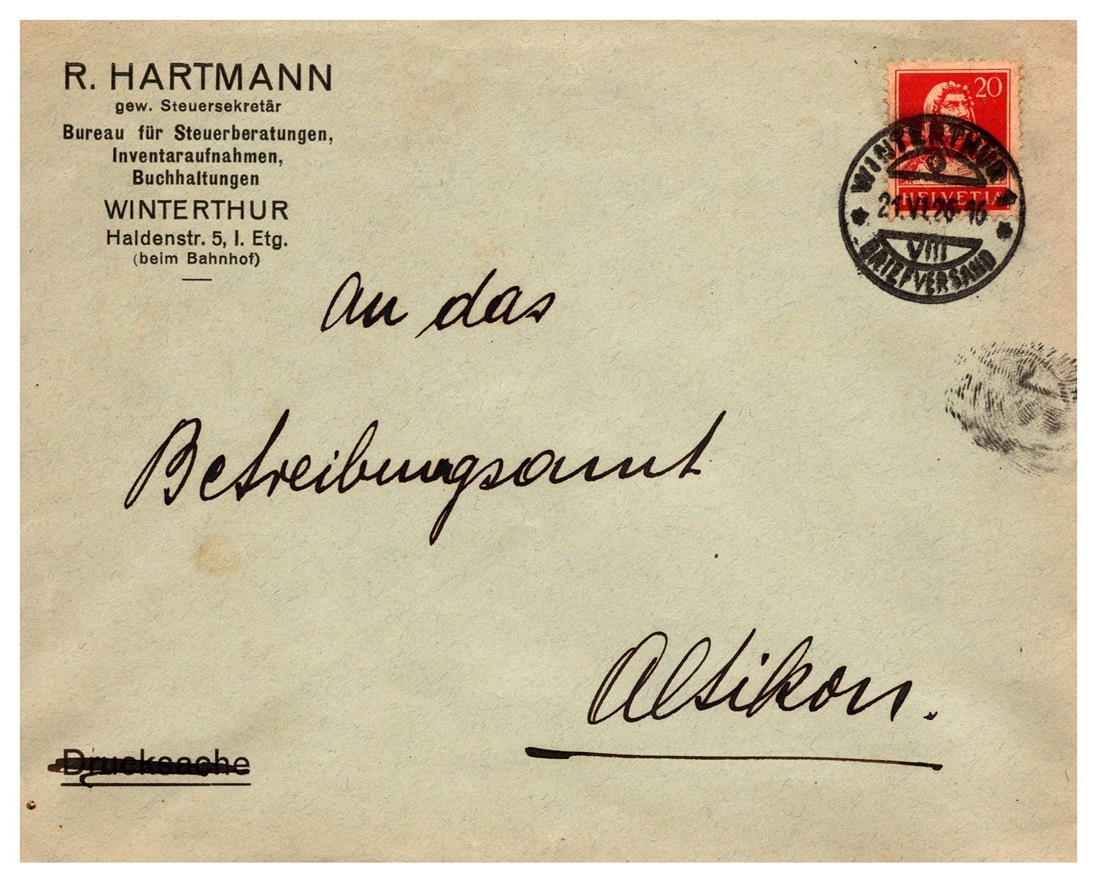 R. HARTMANN
gew. Steuersekretär
Bureau für Steuerberatungen,
Inventaraufnahmen,
Buchhaltungen
WINTERTHUR
Haldenstr. 5, I. Etg.
(beim Bahnhof)
20
HELVETIA
WINTERTHUR 1
21.VI.26-16
VIII
BRIEFVERSAND
An das
Betreibungsamt
Altikon.
Drucksache